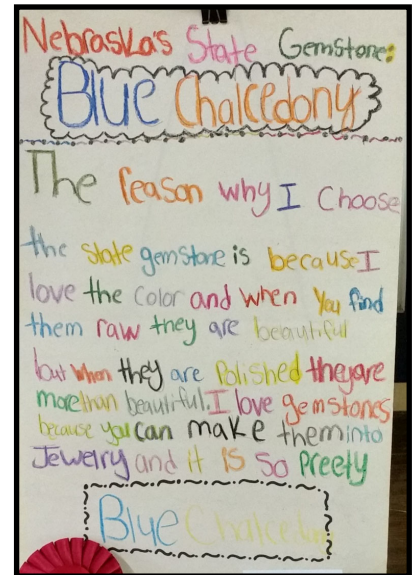 Nebraska's State Gemstone:
Blue Chalcedony
The reason why I choose
the state gemstone is because I
love the color and when you find
them raw they are beautiful
but when they are Polished theyare
morethan beautiful. I love gemstones
because you can make theminto
Jewelry and it is so preety
Blue Chalcedony